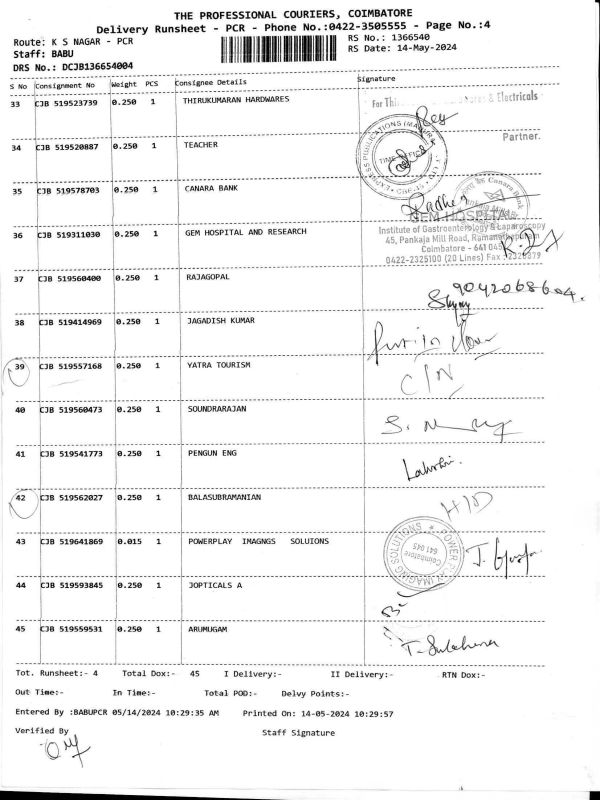 THE PROFESSIONAL COURIERS, COIMBATORE
Delivery Runsheet - PCR - Phone No.:0422-3505555 - Page No.:4
Route: K S NAGAR - PCR
RS No.: 1366540
Staff: BABU
RS Date: 14-May-2024
DRS No.: DCJB136654004
S No Consignment No Weight PCS Consignee Details Signature
33 CJB 519523739 0.250 1 THIRUKUMARAN HARDWARES
& Electricals
Partner.
34 CJB 519520887 0.250 1 TEACHER
TIME OFFICE
35 CJB 519578703 0.250 1 CANARA BANK
Canara Bank
Radhe
36 CJB 519311030 0.250 1 GEM HOSPITAL AND RESEARCH
GEM HOSPITAL
Institute of Gastroenterology & Laparoscopy
45, Pankaja Mill Road, Ramanathapuram
Coimbatore - 641 045
0422-2325100 (20 Lines) Fax : 2320879
37 CJB 519560400 0.250 1 RAJAGOPAL
9042068604.
38 CJB 519414969 0.250 1 JAGADISH KUMAR
39 CJB 519557168 0.250 1 YATRA TOURISM
C/N
40 CJB 519560473 0.250 1 SOUNDRARAJAN
41 CJB 519541773 0.250 1 PENGUN ENG
42 CJB 519562027 0.250 1 BALASUBRAMANIAN
H/D
43 CJB 519641869 0.015 1 POWERPLAY IMAGNGS SOLUIONS
POWER PLAY IMAGING SOLUTIONS
Coimbatore
641 045
44 CJB 519593845 0.250 1 JOPTICALS A
45 CJB 519559531 0.250 1 ARUMUGAM
T. Sulochana
Tot. Runsheet:- 4 Total Dox:- 45 I Delivery:- II Delivery:- RTN Dox:-
Out Time:- In Time:- Total POD:- Delvy Points:-
Entered By :BABUPCR 05/14/2024 10:29:35 AM Printed On: 14-05-2024 10:29:57
Verified By
Staff Signature